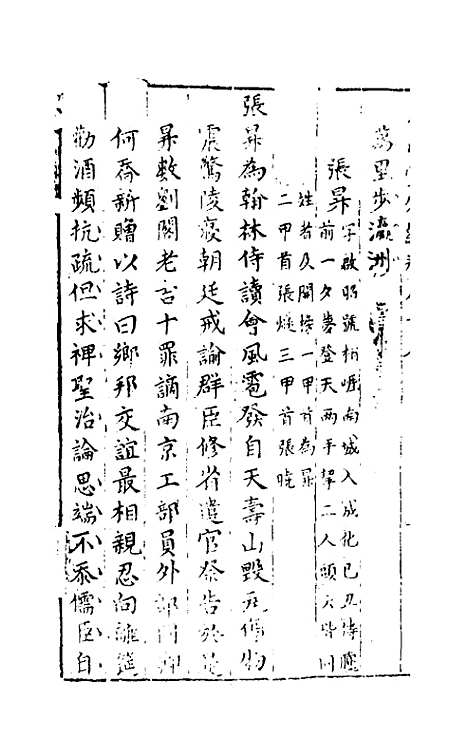 萬里步瀛洲
張昇字啟昭號栢崖南城人成化己丑侍臚
前一夕夢登天兩手挈二人頭亦皆同
姓者及閣榜一甲首為昇
二甲首張燧三甲首張曉
張昇為翰林侍讀會風雹發自天壽山毀瓦傷物
震驚陵寢朝廷戒諭群臣修省遣官祭告於是
昇數劉閣老吉十罪謫南京工部員外郎同鄉
何喬新贈以詩曰鄉邦交誼最相親忍向離筵
勸酒頻抗疏但求裨聖治論思端不忝儒臣自